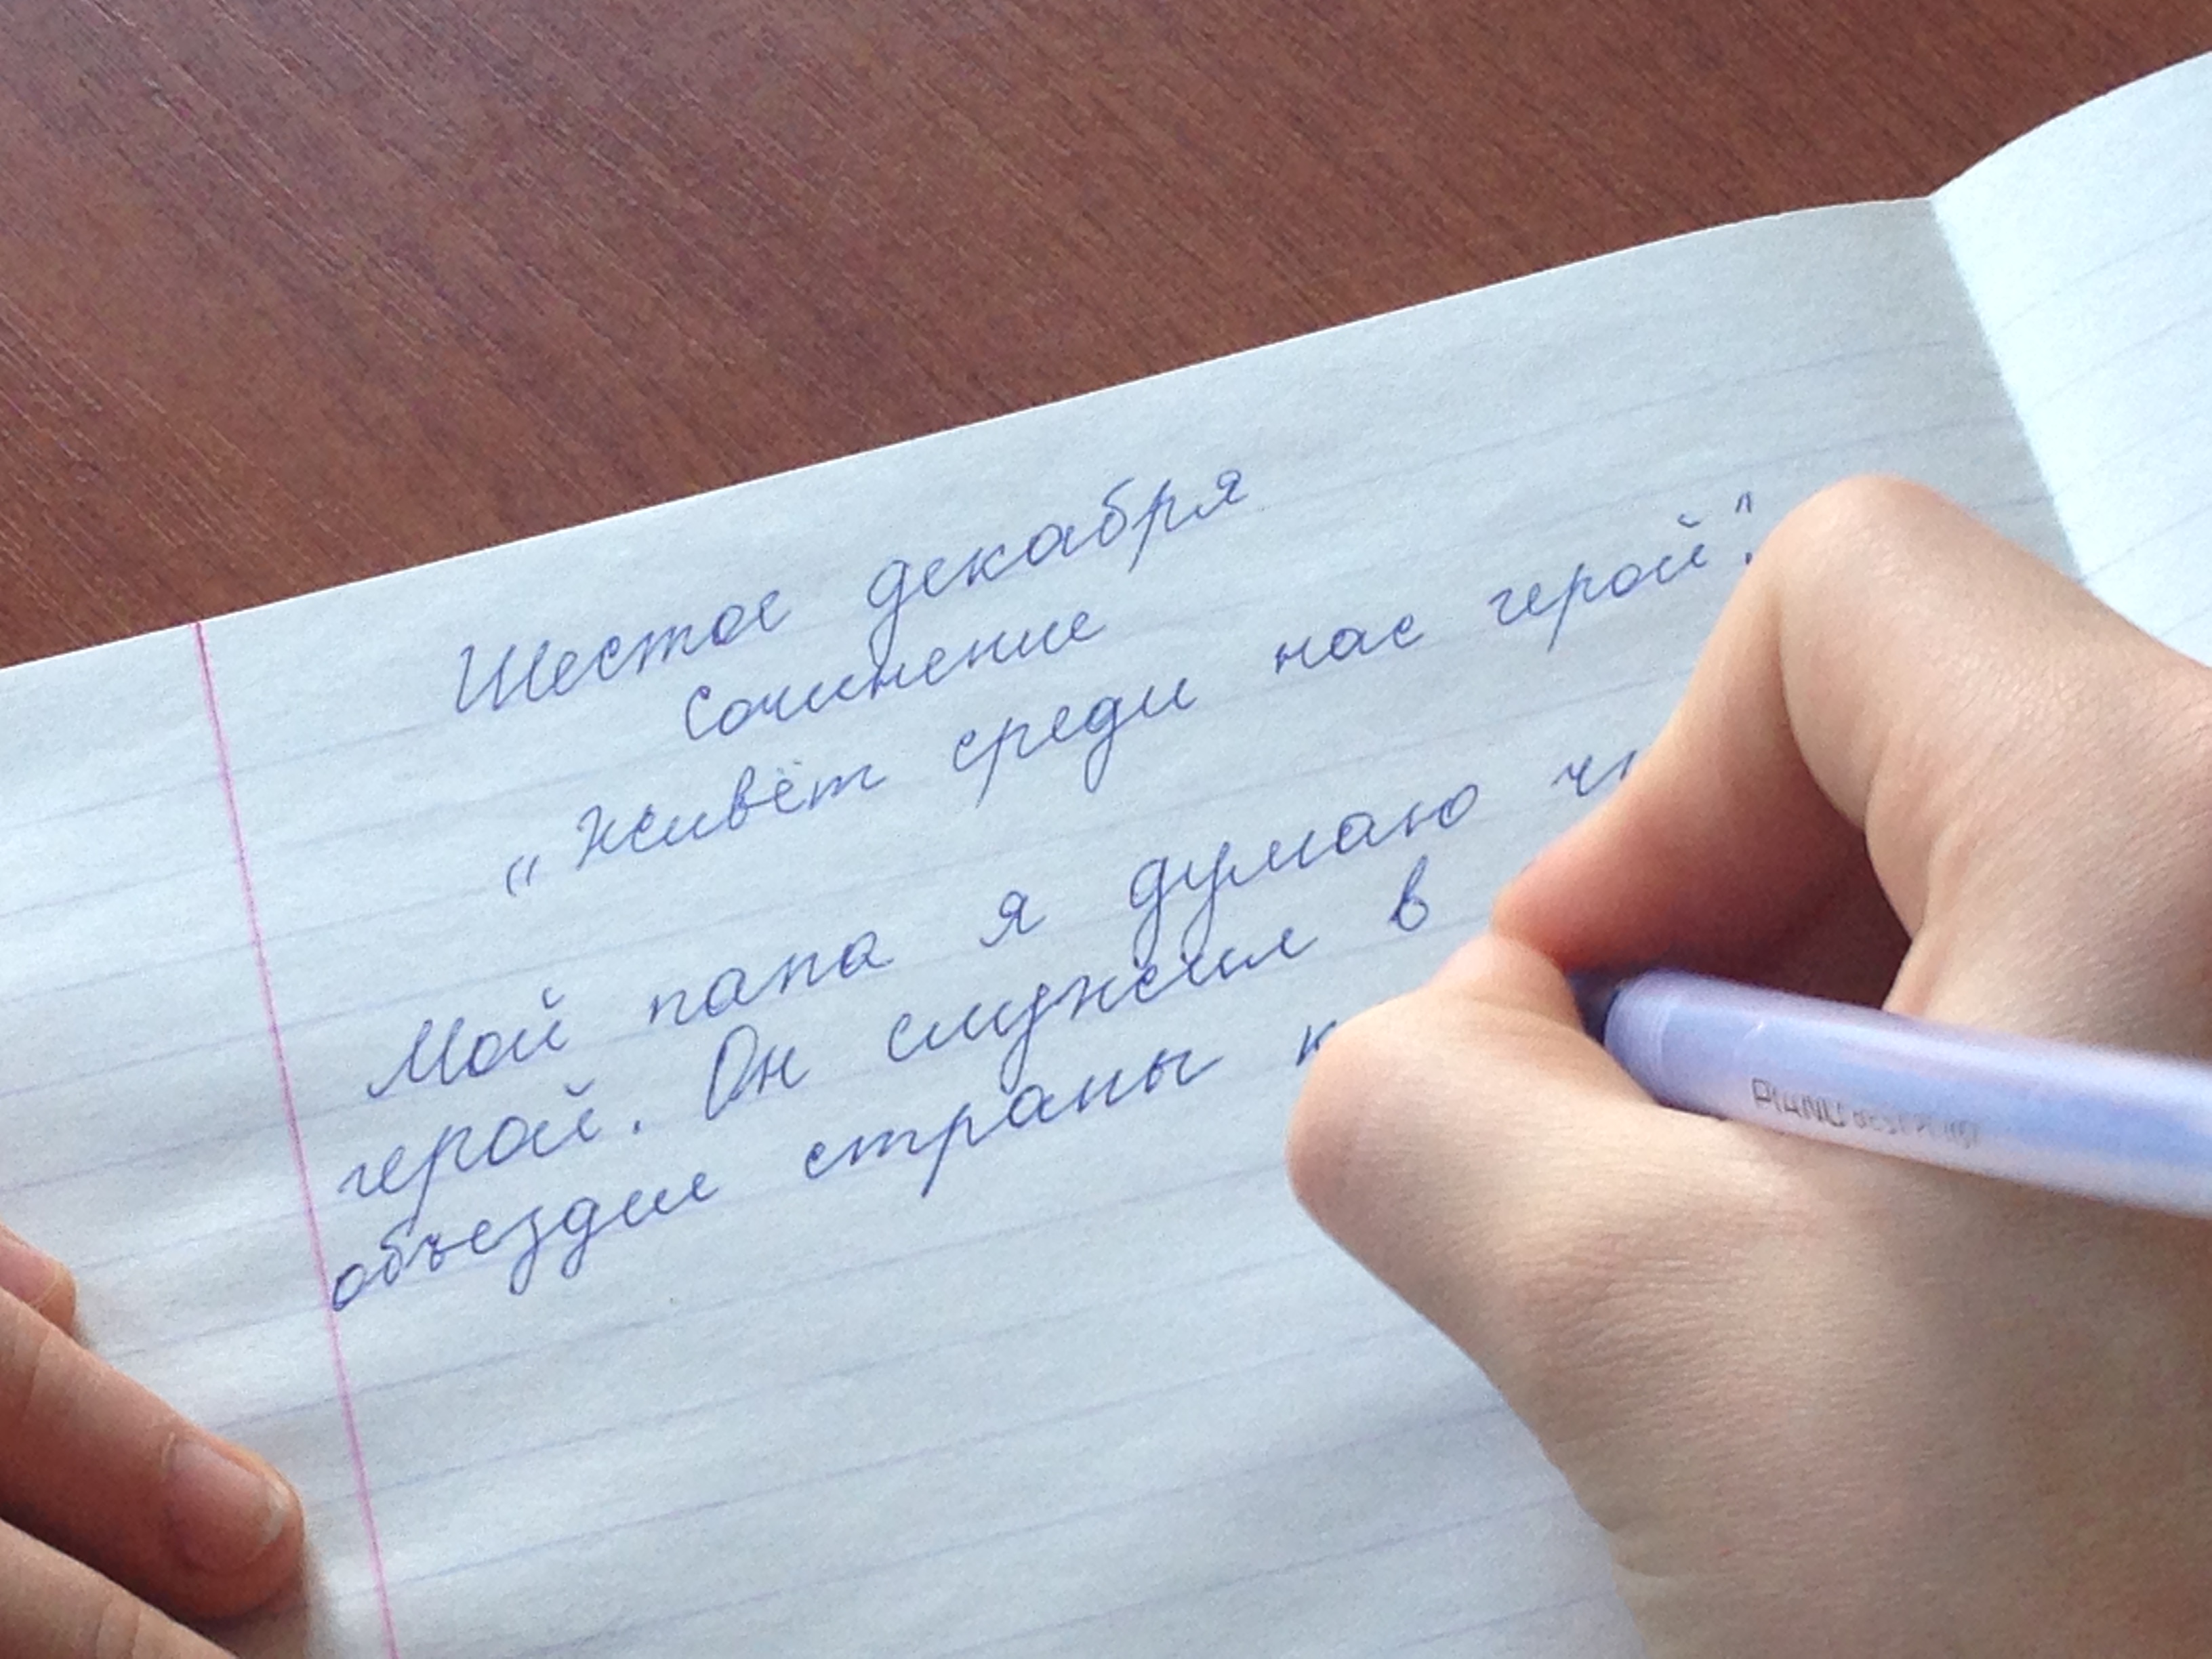 Шестое декабря
Сочинение
„Живёт среди нас герой".
Мой папа я думаю
герой. Он служил в
объездил страны
PIANO